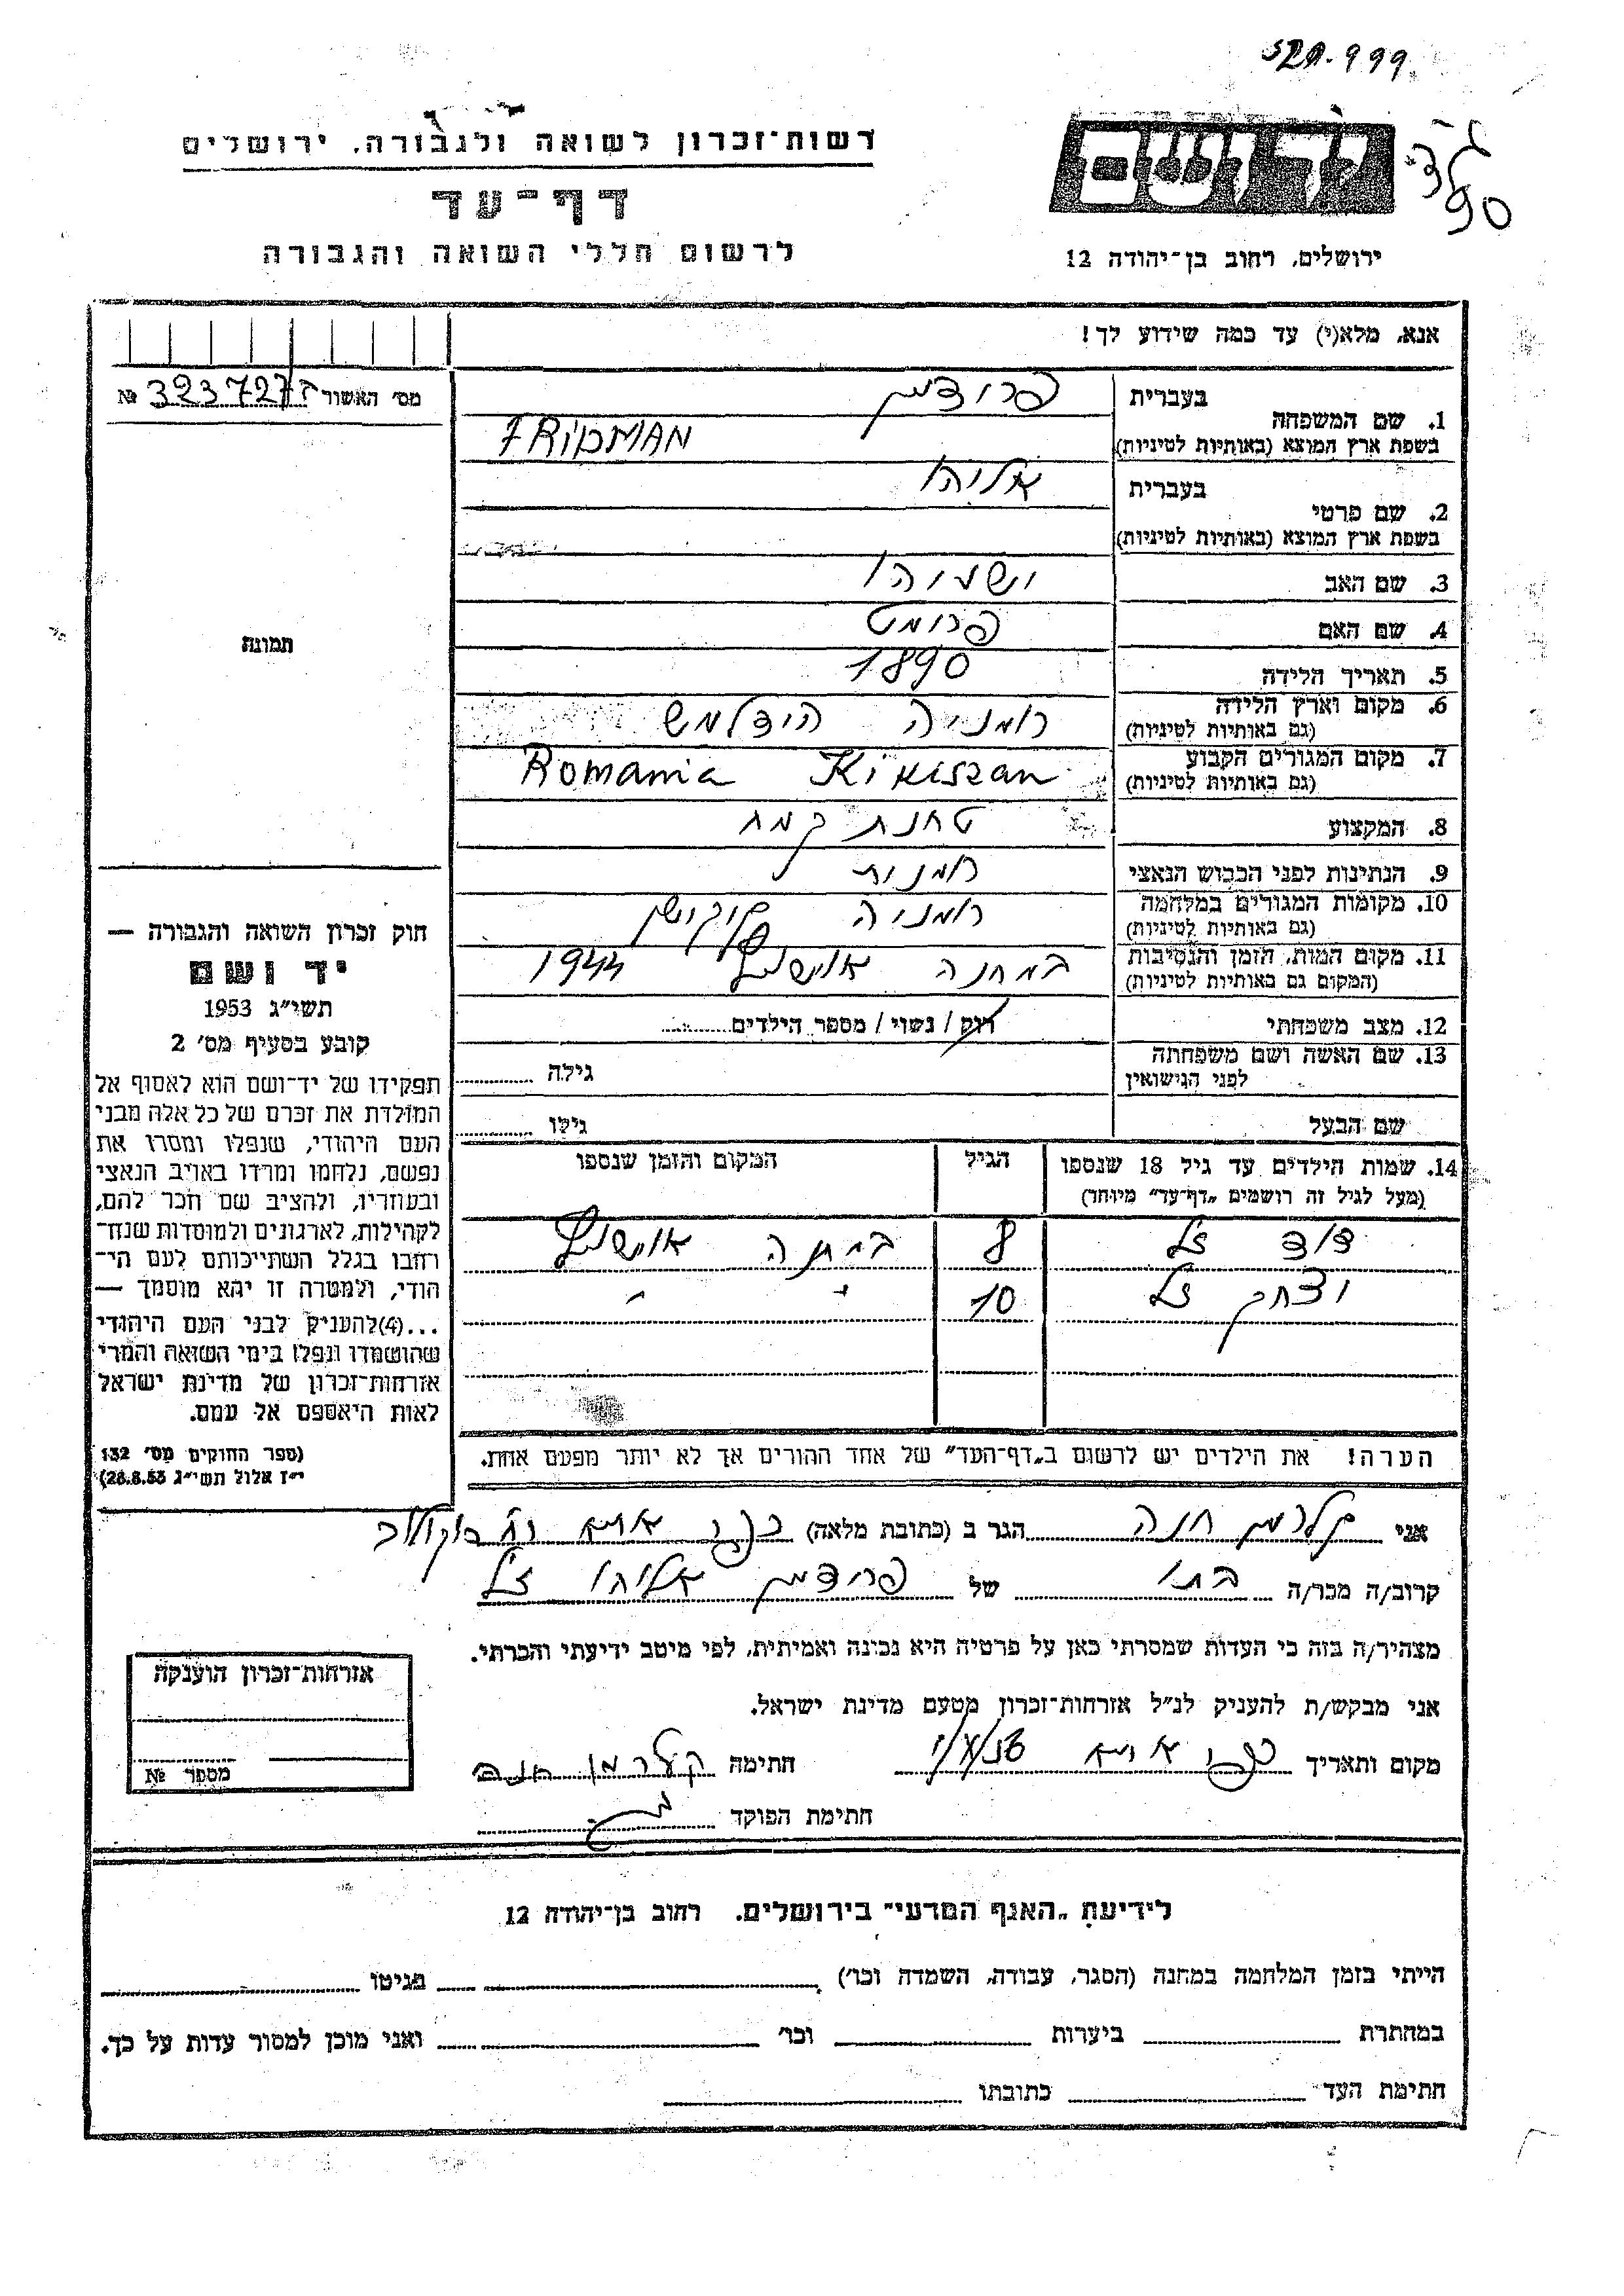 רשות-זכרון לשואה ולגבורה, ירושלים
דף-עד
לרשום חללי השואה והגבורה
ירושלים, רחוב בן-יהודה 12
אנא, מלא(י) עד כמה שידוע לך!
מס׳ האשור №
1. שם המשפחה
בעברית
פרידמן
בשפת ארץ המוצא (באותיות לטיניות)
FRIDMAN
2. שם פרטי
בעברית
אליהו
בשפת ארץ המוצא (באותיות לטיניות)
3. שם האב ישעיהו
4. שם האם פרומט
5. תאריך הלידה 1890
6. מקום וארץ הלידה רומניה
(גם באותיות לטיניות)
7. מקום המגורים הקבוע Romania Kikiszan
(גם באותיות לטיניות)
8. המקצוע טחנת קמח
9. הנתינות לפני הכבוש הנאצי רומנית
10. מקומות המגורים במלחמה רומניה
(גם באותיות לטיניות)
11. מקום המות, הזמן והנסיבות במחנה אושויץ 1944
(המקום גם באותיות לטיניות)
12. מצב משפחתי רווק / נשוי / מספר הילדים
13. שם האשה ושם משפחתה גילה
לפני הנישואין
שם הבעל גילו
14. שמות הילדים עד גיל 18 שנספו הגיל המקום והזמן שנספו
(מעל לגיל זה רושמים „דף-עד״ מיוחד)
דוד ז״ל 8 במחנה אושויץ
יצחק ז״ל 10 ״ ״
הערה! את הילדים יש לרשום ב„דף-העד״ של אחד ההורים אך לא יותר מפעם אחת.
תמונה
חוק זכרון השואה והגבורה —
יד ושם
תשי״ג 1953
קובע בסעיף מס׳ 2
תפקידו של יד-ושם הוא לאסוף אל
המולדת את זכרם של כל אלה מבני
העם היהודי, שנפלו ומסרו את
נפשם, נלחמו ומרדו באויב הנאצי
ובעוזריו, ולהציב שם וזכר להם,
לקהילות, לארגונים ולמוסדות שנח-
רבו בגלל השתייכותם לעם הי-
הודי, ולמטרה זו יהא מוסמך —
...(4) להעניק לבני העם היהודי
שהושמדו ונפלו בימי השואה והמרי
אזרחות-זכרון של מדינת ישראל
לאות היאספם אל עמם.
(ספר החוקים מס׳ 132
י״ז אלול תשי״ג 28.8.53)
אני קלרמן חנה הגר ב (כתובת מלאה) כפר אתא
קרוב/ה מכר/ה בתו של פרידמן אליהו ז״ל
מצהיר/ה בזה כי העדות שמסרתי כאן על פרטיה היא נכונה ואמיתית, לפי מיטב ידיעתי והכרתי.
אני מבקש/ת להעניק לנ״ל אזרחות-זכרון מטעם מדינת ישראל.
מקום ותאריך כפר אתא חתימה קלערמן חנה
חתימת הפוקד
אזרחות-זכרון הוענקה
מספר №
לידיעת „האגף המדעי״ בירושלים, רחוב בן-יהודה 12
הייתי בזמן המלחמה במחנה (הסגר, עבודה, השמדה וכו׳) בגיטו
במחתרת ביערות וכו׳ ואני מוכן למסור עדות על כך.
חתימת העד כתובתו